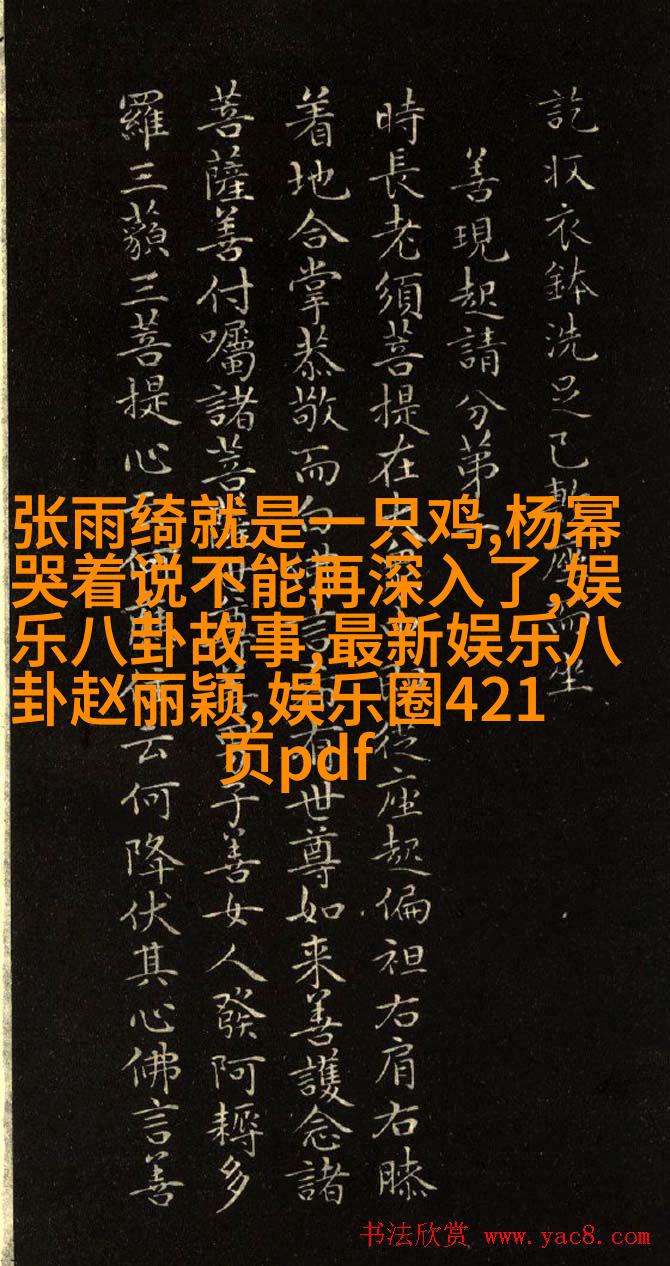 訖収衣鉢洗足已敷座而坐
善現起請分第
時長老須菩提在從座起偏袒右肩右膝
着地合掌恭敬而白言有世尊如来善護念諸
菩薩善付囑諸菩子善女人發阿耨多
羅三藐三菩提心云何降伏其心佛言善
张雨绮就是一只鸡,杨幂
哭着说不能再深入了,娱
乐八卦故事,最新娱乐八
卦赵丽颖,娱乐圈421
页pdf
书法欣赏 www.yac8.com